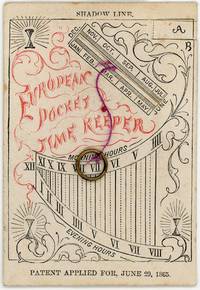 SHADOW LINE.
A
B
NOV. OCT. SEP. AUG. JULY
JAN. FEB. MAR. APR. MAY
EUROPEAN
POCKET
TIME KEEPER
MORNING HOURS
XII XI X IX VIII VII VI V
I II III IIII V VI VII VIII
EVENING HOURS
PATENT APPLIED FOR, JUNE 29, 1865.